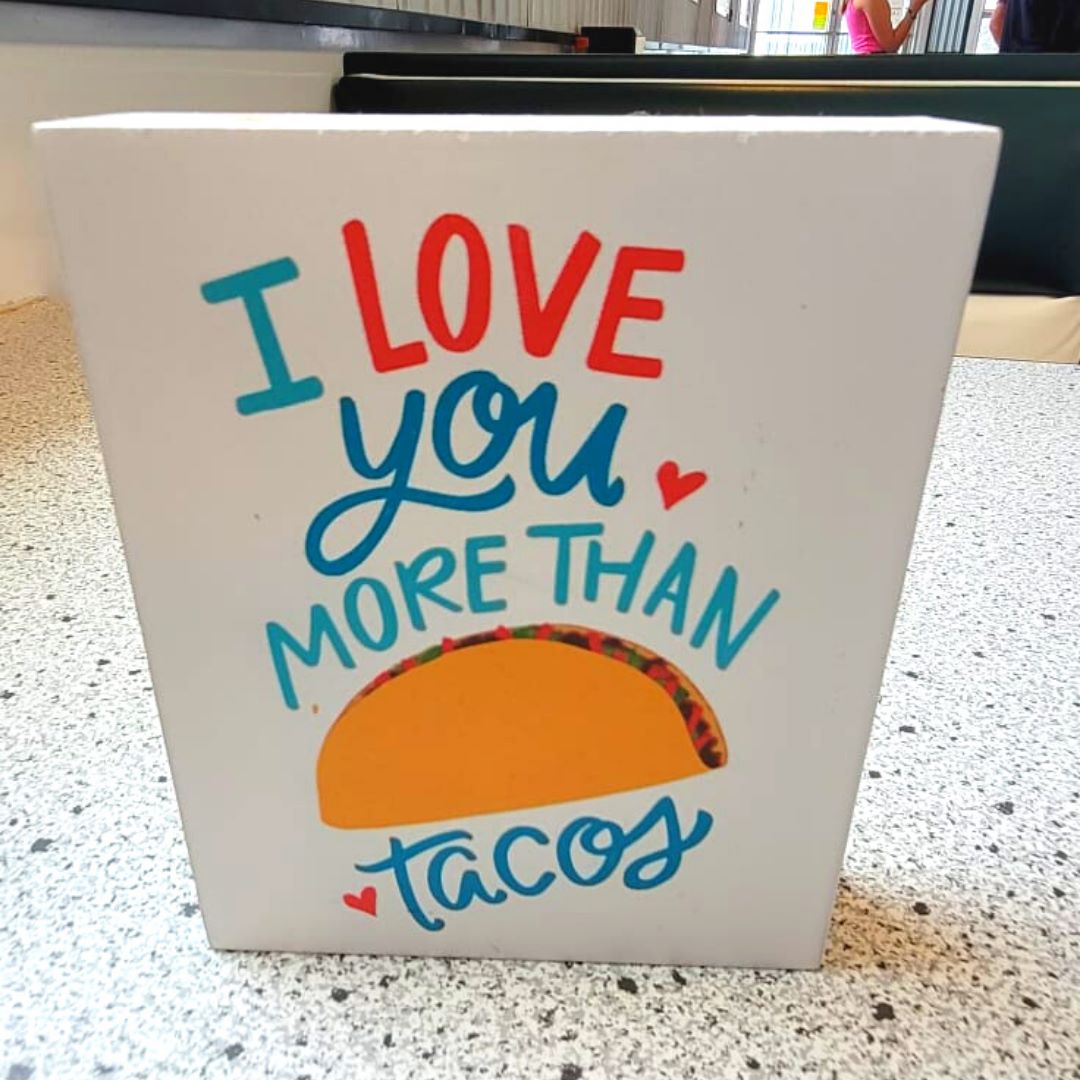 I LOVE
you
MORE THAN
tacos